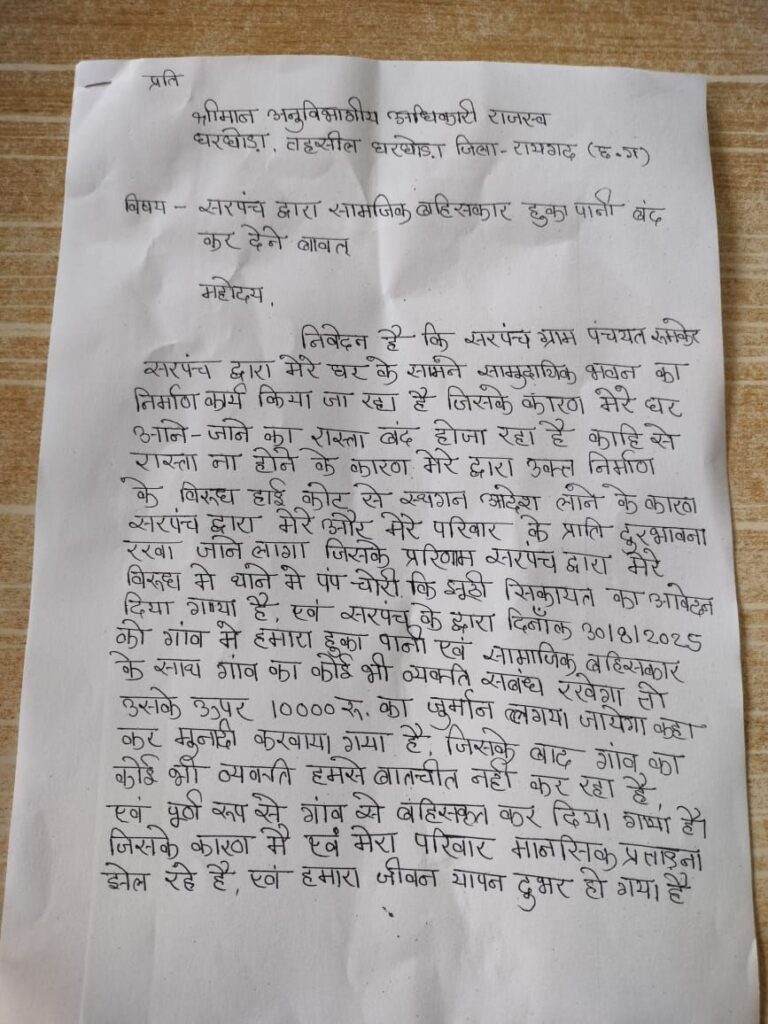 प्रति
श्रीमान अनुविभागीय अधिकारी राजस्व
घरघोडा, तहसील घरघोडा जिला - रायगढ (छ.ग)
विषय - सरपंच द्वारा सामजिक बहिसकार हुका पानी बंद
कर देने बावत्
महोदय,
निवेदन है कि सरपंच ग्राम पंचयत रुमकेर
सरपंच द्वारा मेरे घर के सामने सामुदायिक भवन का
निर्माण कार्य किया जा रहा है जिसके कारण मेरे घर
आने-जाने का रास्ता बंद होजा रहा है काहि से
रास्ता ना होने के कारण मेरे द्वारा उक्त निर्माण
के विरूध हाई कोर्ट से स्थगन आदेश लाने के कारण
सरपंच द्वारा मेरे और मेरे परिवार के प्राति दुरभावना
रखा जाने लागा जिसके प्ररिणाम सरपंच द्वारा मेरे
विरूध मे थाने मे पंप चोरी कि झूठी सिकायत का आवेदन
दिया गाया है, एवं सरपंच के द्वारा दिनाँक 30/8/2025
को गांव मे हमारा हुका पानी एवं सामाजिक बहिसकार
के साथ गांव का कोई भी व्यक्ति सबंध रखेगा तो
उसके ऊपर 10000 रू. का जुर्मान लगाया जायेगा कहा
कर मूनादी करवाया गया है, जिसके बाद गांव का
कोई भी व्यक्ति हमसे बातचीत नही कर रहा है
एवं पूर्ण रूप से गांव से बंहिसकृत कर दिया गाया है।
जिसके कारण मै एवं मेरा परिवार मानसिक प्रताड़ना
झेल रहे है, एवं हमारा जीवन यापन दुभर हो गया है